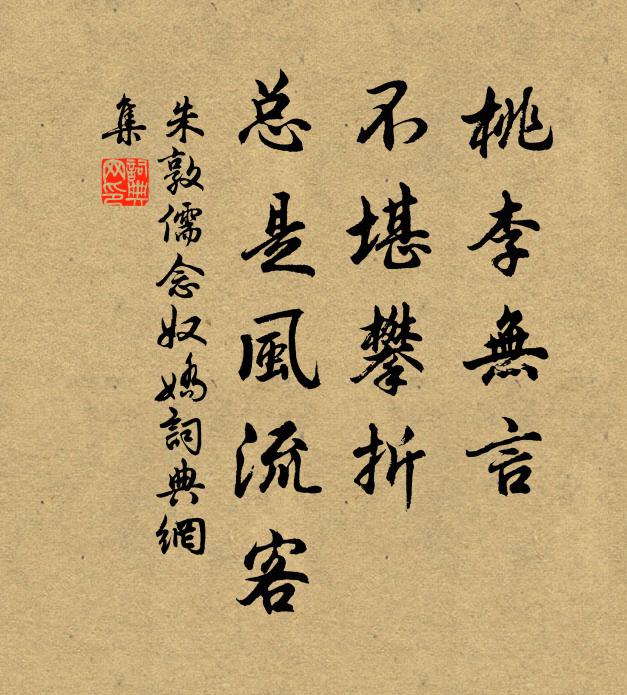 桃李無言
不堪攀折
总是風流客
朱敦儒念奴嬌詞典網
集
詞典
网印